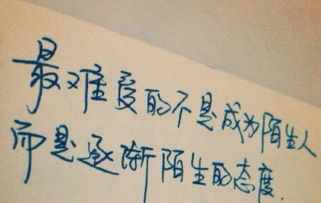 最难受的不是成为陌生人
而是逐渐陌生的态度.